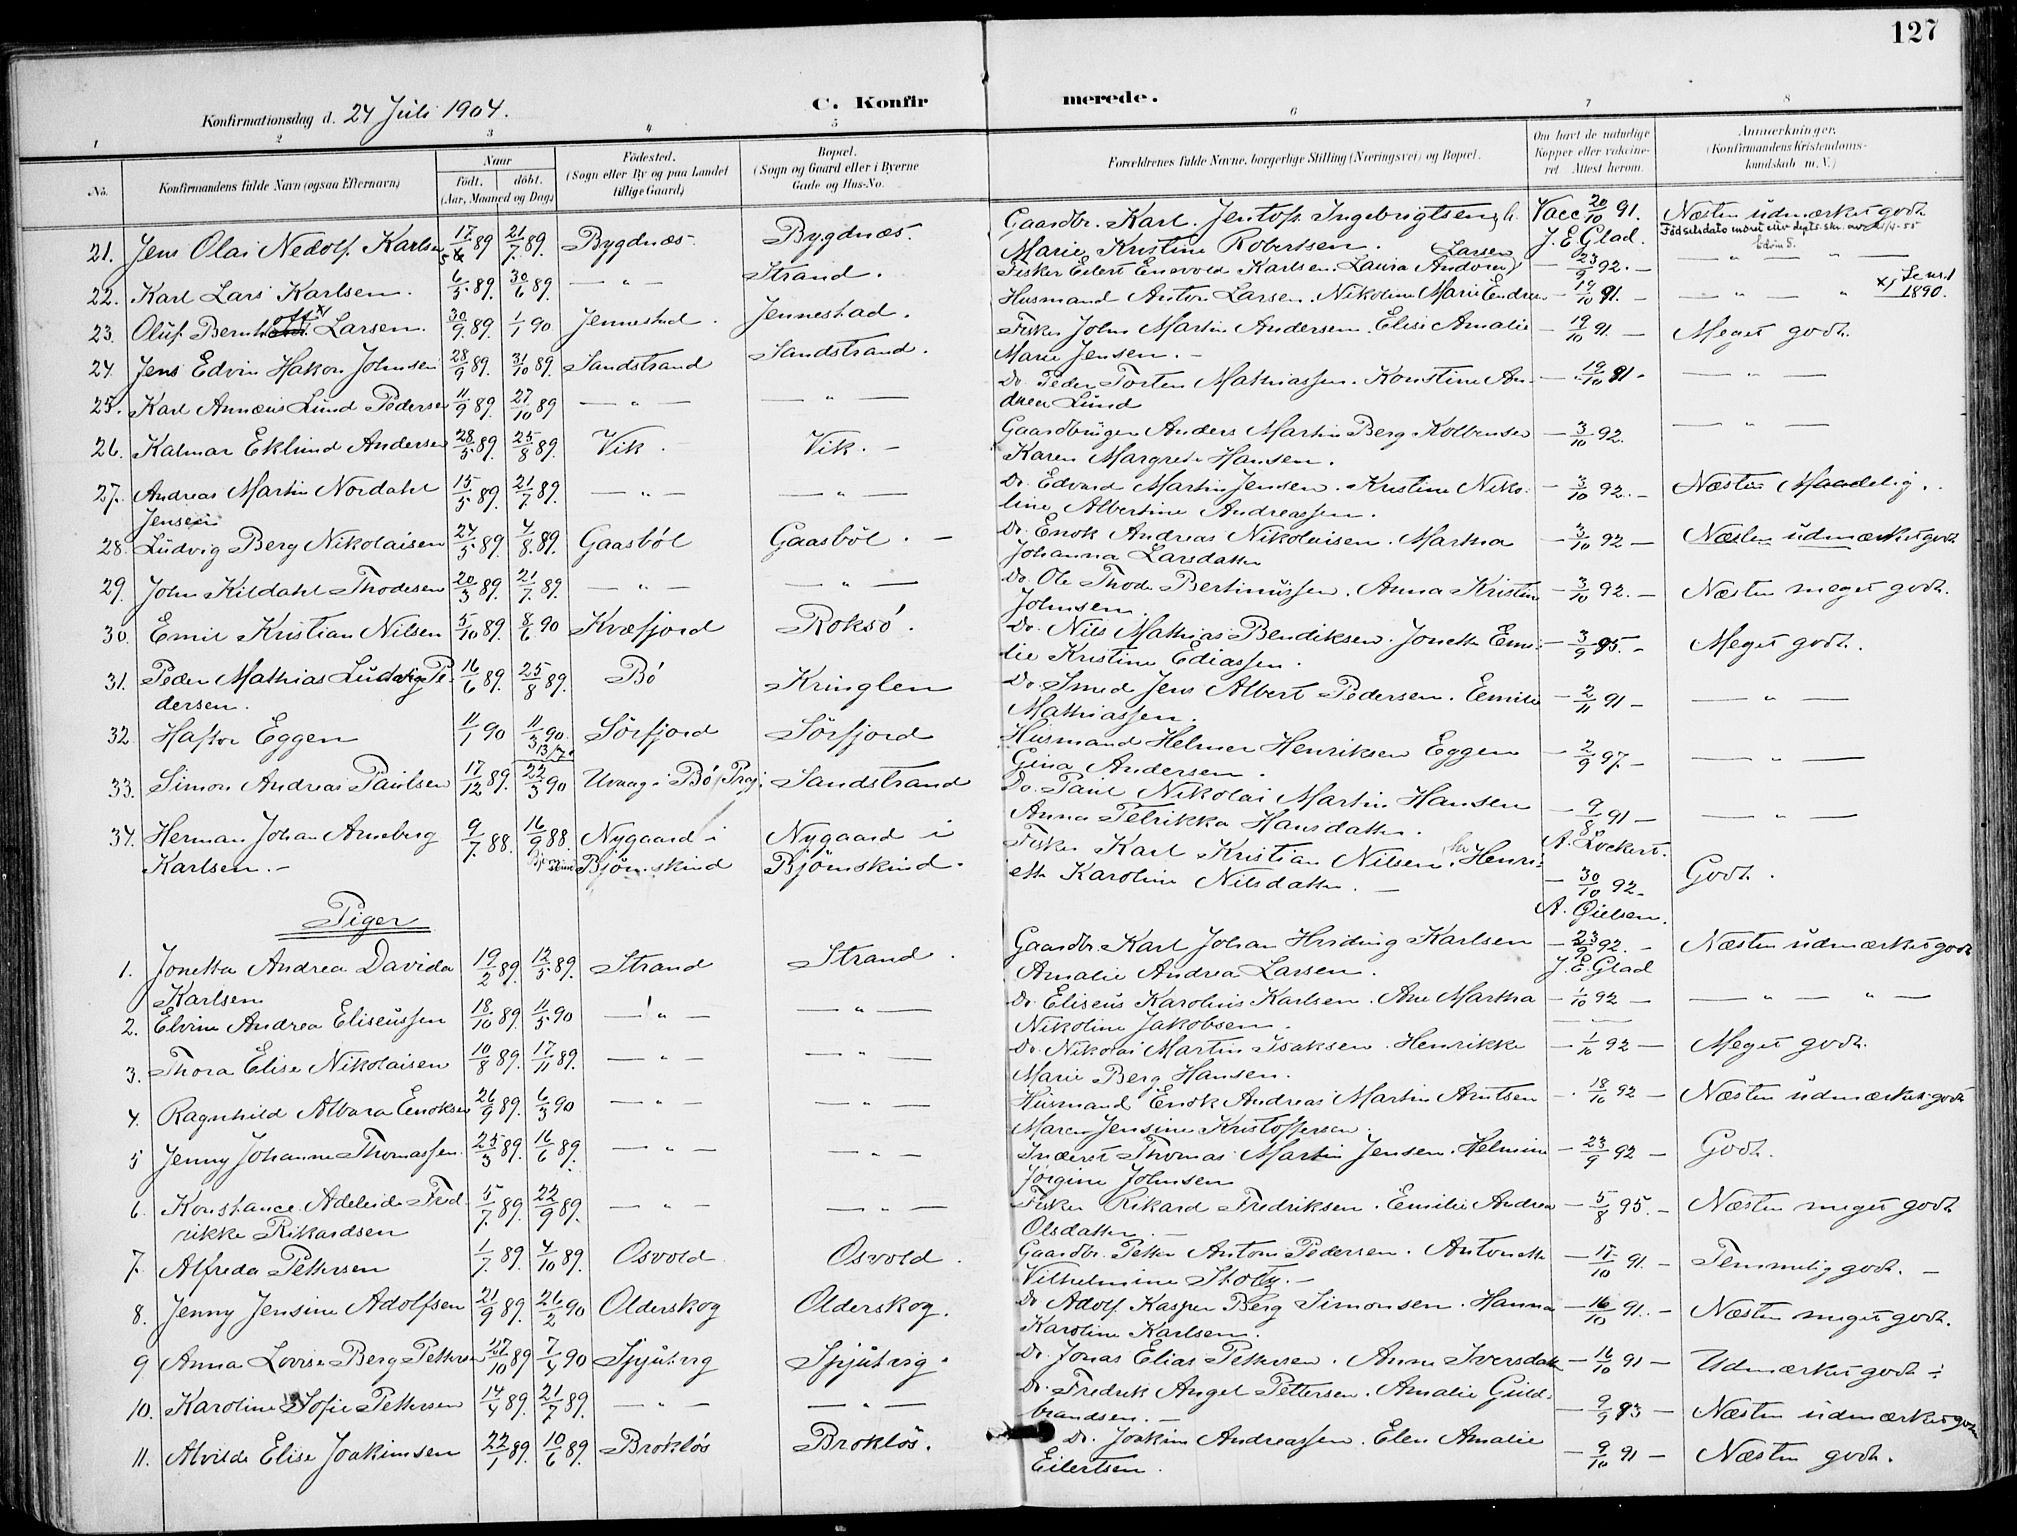 127
Konfirmationsdag d. 24 Juli 1904.
C. Konfir merede.
1 2 3 4 5 6 7 8
No.
Konfirmandens fulde Navn (ogsaa Efternavn)
Naar
født. døbt.
(Aar, Maaned og Dag)
Fødested.
(Sogn eller By og paa Landet
tillige Gaard)
Bopæl.
(Sogn og Gaard eller i Byerne
Gade og Hus-No.
Forældrenes fulde Navne, borgerlige Stilling (Næringsvei) og Bopæl.
Om havt de naturlige
Kopper eller vakcine-
ret Attest herom.
Anmærkninger.
(Konfirmandens Kristendoms-
kundskab m. V.)
21. Jens Olai Nedolf Karlsen 17/5 89 21/7 89. Bygdnæs. Bygdnæs. Gaardbr. Karl Jentoft Ingebrigtsen Vacc 20/10 91. Næsten udmærket godt
Marie Kristine Robertsen. J. E. Glad. Fødselsdato endret
22. Karl Lars Karlsen. 6/5 89. 30/6 89. — " — Strand. Fisker Eilert Enevold Karlsen. Laura Andrea Larsen — 23/9 92. — — " — " —
23. Oluf Bernhoft x) Larsen. 30/9 89. 1/1 90 Jennestad. Jennestad. Husmand Anton Larsen. Nikoline Marie Endres — 19/10 91. — — " — " x) 1890.
24. Jens Edvin Hakon Johnsen 28/9 89. 31/10 89. Sandstrand Sandstrand. Fisker John Martin Andersen. Elise Amalie — 19/10 91 — Meget godt.
Marie Jensen. —
25. Karl Annæus Lund Pedersen 11/9 89. 27/10 89 — " — — " — Do. Peder Torten Mathiassen. Konstine An- — 19/10 91 — — " —
drea Lund
26. Kalmar Eklund Andersen 28/5 89. 25/8 89. Vik. Vik. — Gaardbruger Anders Martin Berg Kolbensen — 3/10 92. — " —
Karen Margrete Hansen.
27. Andreas Martin Nordahl 15/5 89. 21/7 89. — " — — " — Do. Edvard Martin Jensen. Kristine Niko- — 3/10 92. — Næsten Maadelig.
Jensen line Albertine Andreassen.
28. Ludvig Berg Nikolaisen 24/5 89 4/8 89. Gaasbøl Gaasbøl. — Do. Enok Andreas Nikolaisen. Martha — 3/10 92 — Næsten udmærket godt
Johanna Larsdatter
29. John Kildahl Thodesen 20/3 89. 21/7 89. — " — — " — Do. Ole Thode Bertinussen. Anna Kristine — 3/10 92. — Næsten meget godt.
Johnsen.
30. Emil Kristian Nilsen 5/10 89. 8/6 90 Kvæfjord Roksø. Do. Nils Mathias Bendiksen. Jonette Emi- — 3/9 95. — Meget godt.
lie Kristine Ediassen.
31. Peder Mathias Ludvig Pe- 16/6 89. 25/8 89. Bø Kringlen Do. Smed Jens Albert Pedersen. Emilie — 2/11 91 — — " —
dersen. Mathiassen.
32. Haftor Eggen 11/1 90 11/3 90. Sørfjord Sørfjord Husmand Helmer Henriksen Eggen — 2/9 97. — — " —
Gina Andersen.
33. Simon Andreas Paulsen 17/12 89. 22/3 90 Uvaag i Bø Præ. Sandstrand Do. Paul Nikolai Martin Hansen — 9/8 91 — — " —
Anna Petrikka Hansdatter. A. Lockert.
34. Herman Johan Arneberg 9/7 88. 16/9 88. Nygaard i Nygaard i Fisker Karl Kristian Nilsen. Henri-
Karlsen. — Bjørnskind Bjørnskind. ette Karoline Nilsdatter. — — 30/10 92. Godt.
A. Gielsen.
Piger
1. Jonetta Andrea Davida 19/2 89. 12/5 89. Strand Strand. Gaardbr. Karl Johan Hveding Karlsen — 23/9 92. — Næsten udmærket godt
Karlsen Amalie Andrea Larsen. J. E. Glad
2. Elvine Andrea Eliseussen 18/10 89. 11/5 90 — " — — " — Do. Eliseus Karolius Karlsen. Ane Martha — 1/10 92 — — " — " —
Nikoline Jakobsen.
3. Thora Elise Nikolaisen 10/8 89. 17/11 89. — " — — " — Do. Nikolai Martin Isaksen. Henrikke — 1/10 92 — Meget godt.
Marie Berg Hansen.
4. Ragnhild Alvara Enoksen 26/9 89. 6/3 90 — " — — " — Husmand Enok Andreas Martin Arntsen — 18/10 92 — Næsten udmærket godt
Maren Jensine Kristoffersen.
5 Jenny Johanne Thomassen. 25/3 89. 16/6 89. — " — — " — Inderst Thomas Martin Jensen. Helmine — 23/9 92 — Godt.
Jørgine Johnsen
6. Konstance Adeleide Fred- 5/7 89. 22/9 89. — " — — " — Fisker Rikard Fredriksen. Emilie Andrea — 5/8 95. — Næsten meget godt
rikke Rikardsen Olsdatter. —
7. Alfreda Pettersen 1/7 89. 4/10 89. Osvold Osvold. Gaardbr. Petter Anton Pedersen. Antonette — 17/10 91. — Temmelig godt. —
Vilhelmine Stoltz. —
8. Jenny Jensine Adolfsen 21/9 89. 26/2 90 Olderskog Olderskog. Do Adolf Kasper Berg Simonsen. Hanna — 16/10 91. — Næsten meget godt.
Karoline Karlsen.
9 Anna Lovise Berg Pettersen 27/10 89 7/4 90 Spjutvig Spjutvig. Do. Jonas Elias Pettersen. Anne Iversdatter — 16/10 91 — Udmærket godt ÷
10. Karoline Sofie Pettersen 14/4 89. 21/7 89. — " — — " — Do. Fredrik Angel Pettersen. Amalie Guld- — 9/9 93 — Næsten udmærket godt
brandsen. —
11. Alvilde Elise Joakimsen 22/1 89. 10/6 89. Brokløs Brokløs. Do. Joakim Andreassen. Elen Amalie — 9/10 91 — Næsten godt.
Eilertsen.